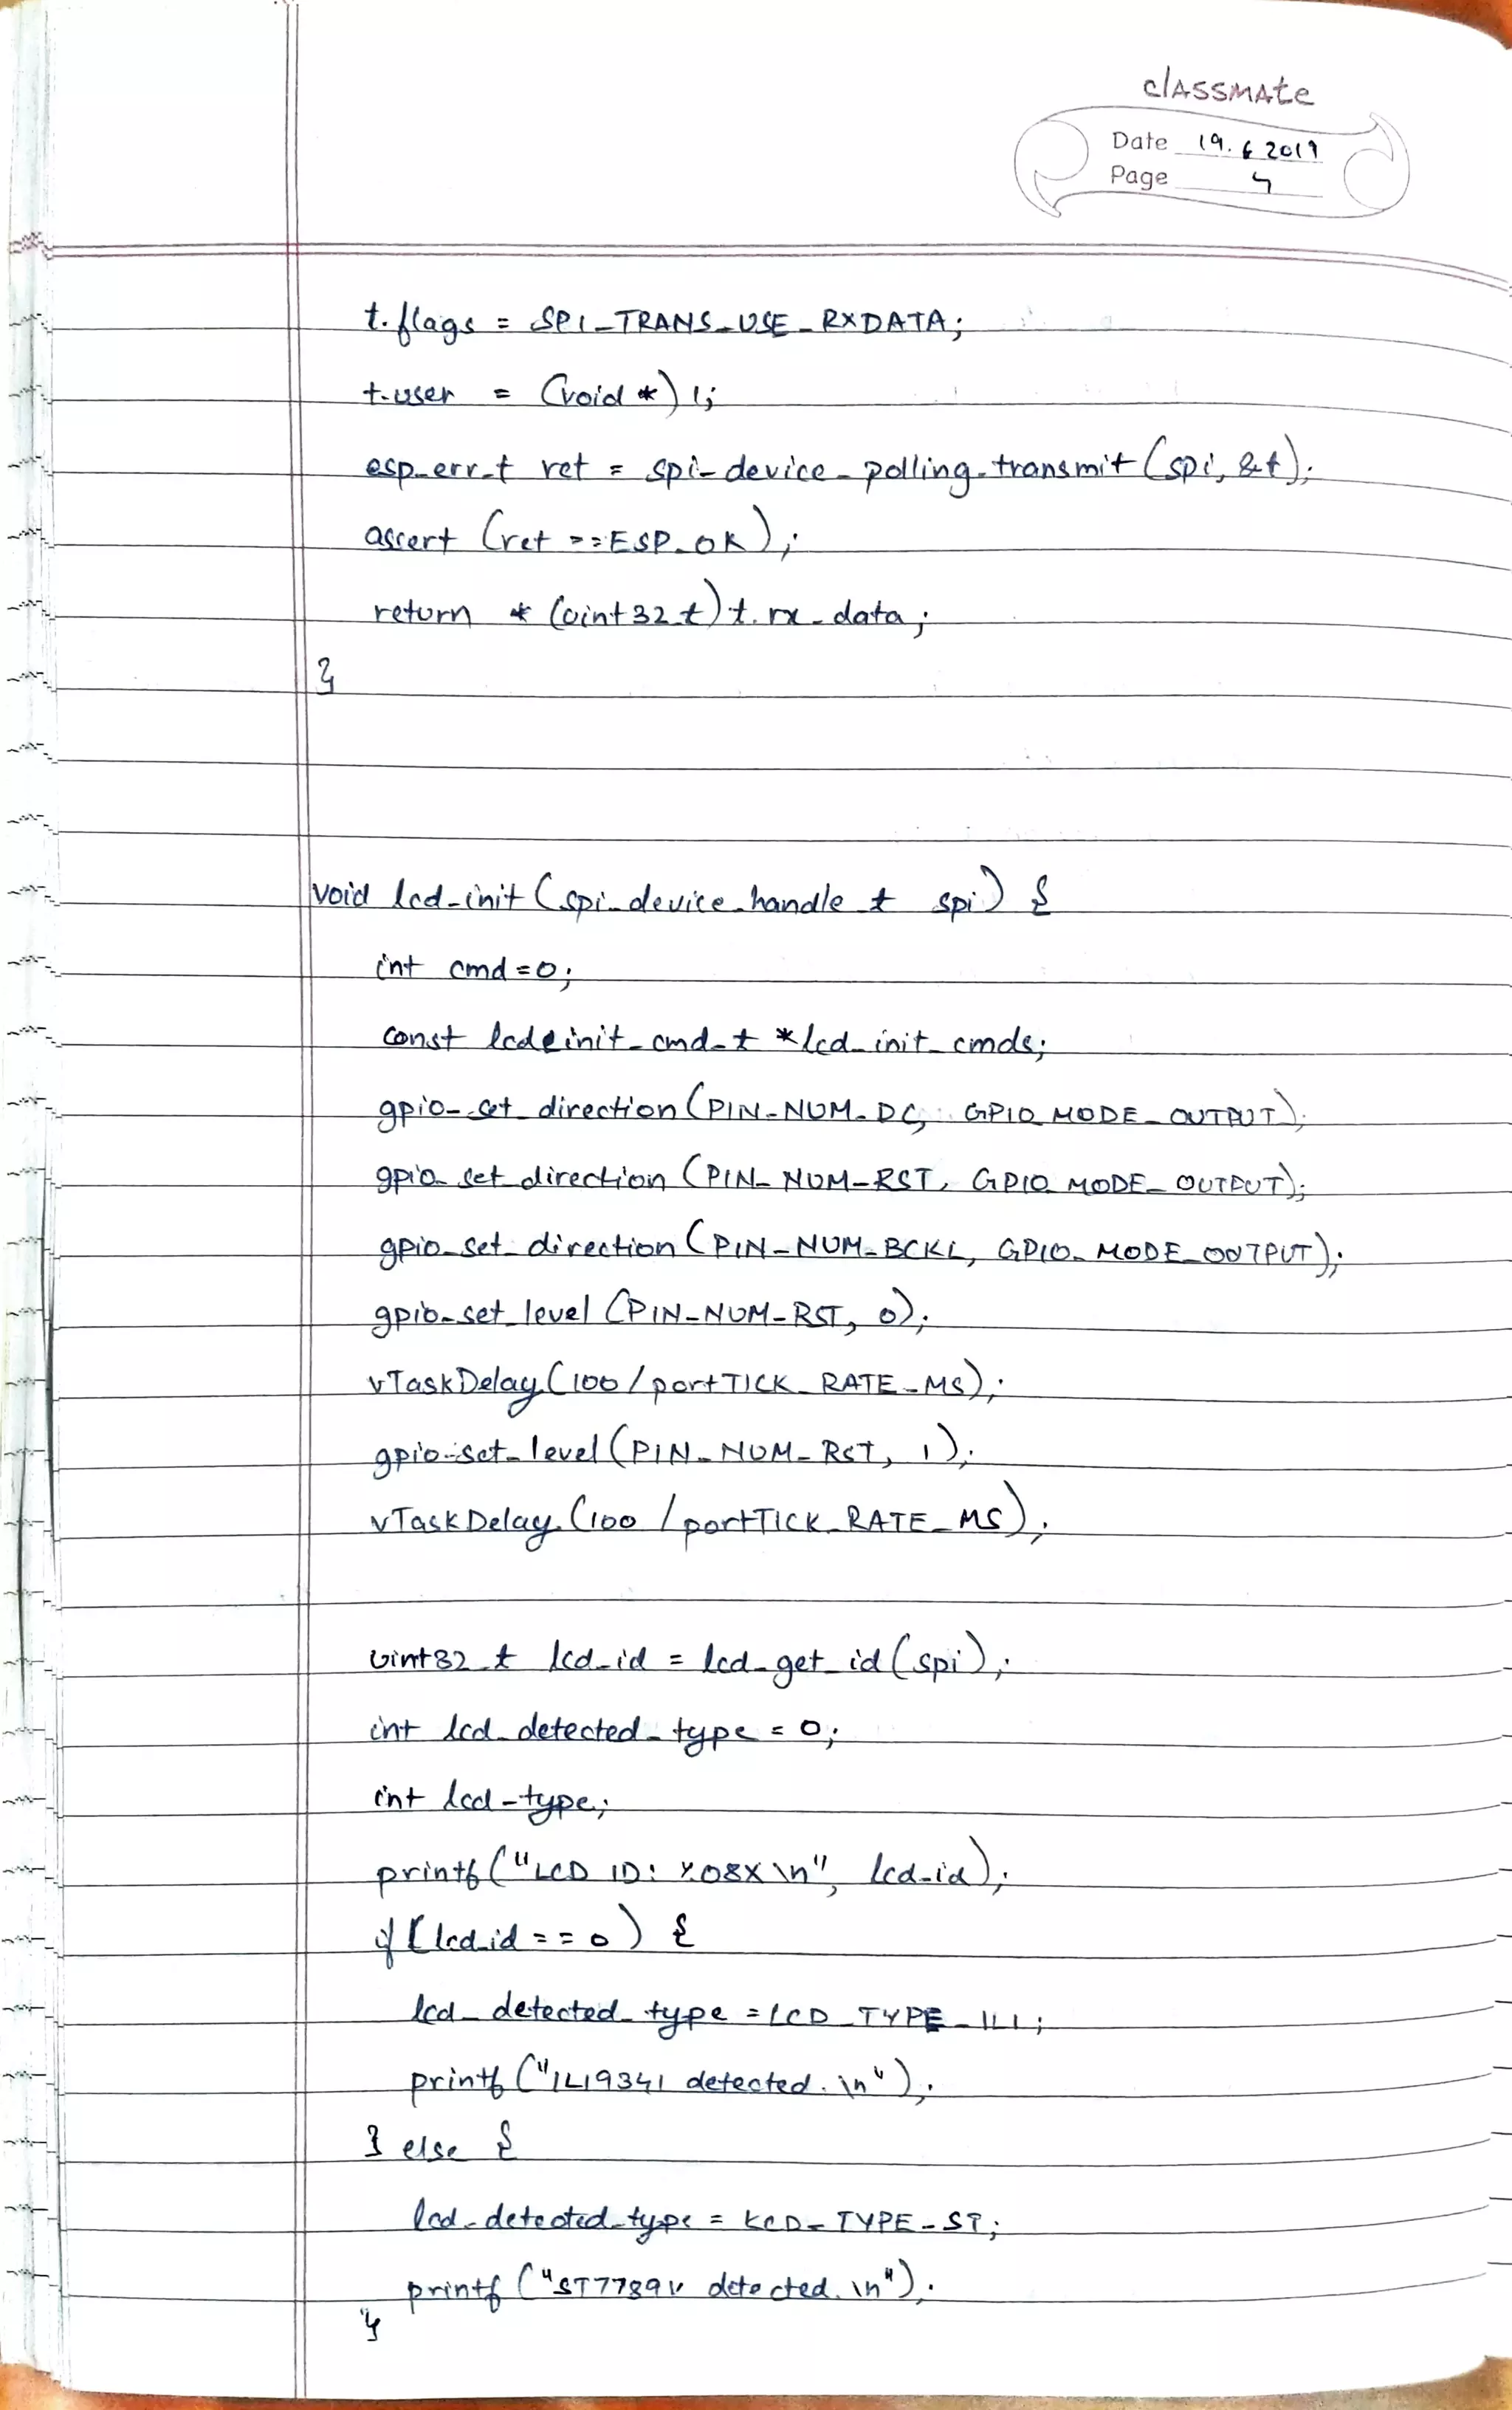 classmate
Date 19.6 2019
Page 4
t.flags = SPI_TRANS_USE_RXDATA;
t.user = (void *) 1;
esp_err_t ret = spi_device_polling_transmit (spi, &t);
assert (ret == ESP_OK);
return * (uint32_t) t.rx_data;
}
void lcd_init (spi_device_handle_t spi) {
int cmd=0;
const lcd_init_cmd_t *lcd_init_cmds;
gpio_set_direction (PIN_NUM_DC, GPIO_MODE_OUTPUT);
gpio_set_direction (PIN_NUM_RST, GPIO_MODE_OUTPUT);
gpio_set_direction (PIN_NUM_BCKL, GPIO_MODE_OUTPUT);
gpio_set_level (PIN_NUM_RST, 0);
vTaskDelay (100 / portTICK_RATE_MS);
gpio_set_level (PIN_NUM_RST, 1);
vTaskDelay (100 / portTICK_RATE_MS);
uint32_t lcd_id = lcd_get_id (spi);
int lcd_detected_type = 0;
int lcd_type;
printf ("LCD ID: %08X \n", lcd_id);
if (lcd_id == 0) {
lcd_detected_type = LCD_TYPE_ILI;
printf ("ILI9341 detected. \n");
} else {
lcd_detected_type = LCD_TYPE_ST;
printf ("ST7789V detected. \n");
}